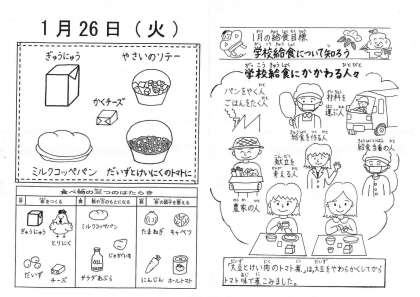 1月26日（火）
ぎゅうにゅう
やさいのソテー
かくチーズ
ミルクコッペパン
だいずとけいにくのトマトに
食べ物の三つのはたらき
体をつくる
熱や力のもとになる
体の調子を整える
ぎゅうにゅう
とりにく
だいず
チーズ
ミルクコッペパン
じゃがいも
サラダあぶら
たまねぎ
キャベツ
にんじん
ホールトマト
1月の給食目標
学校給食について知ろう
学校給食にかかわる人々
パンをやく人
ごはんをたく人
材料を
運ぶ人
給食を作る人
給食当番の人
献立を
考える人
農家の人
「大豆とけい肉のトマト煮」は、大豆をやわらかくしてから
トマト味で煮こみました。